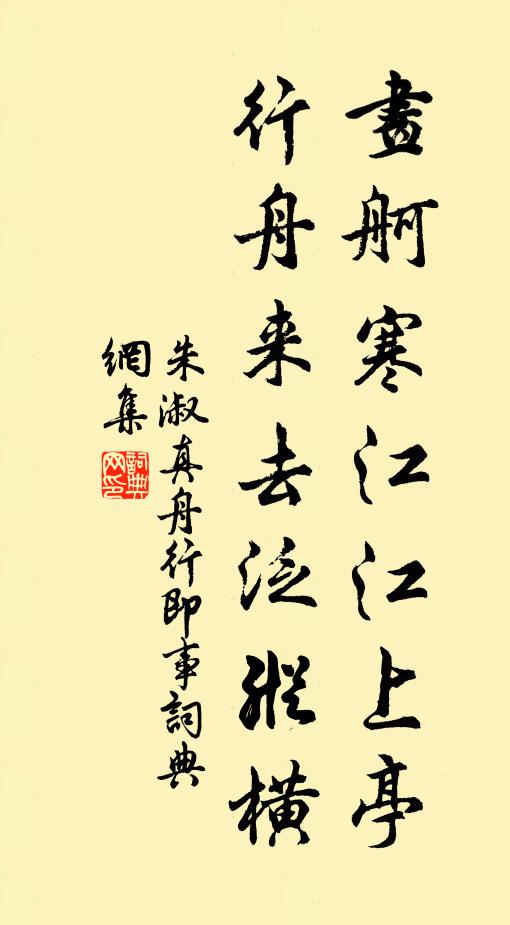 畫舸寒江江上亭
行舟來去泛縱橫
朱淑真舟行即事詞典
網集
詞典網印